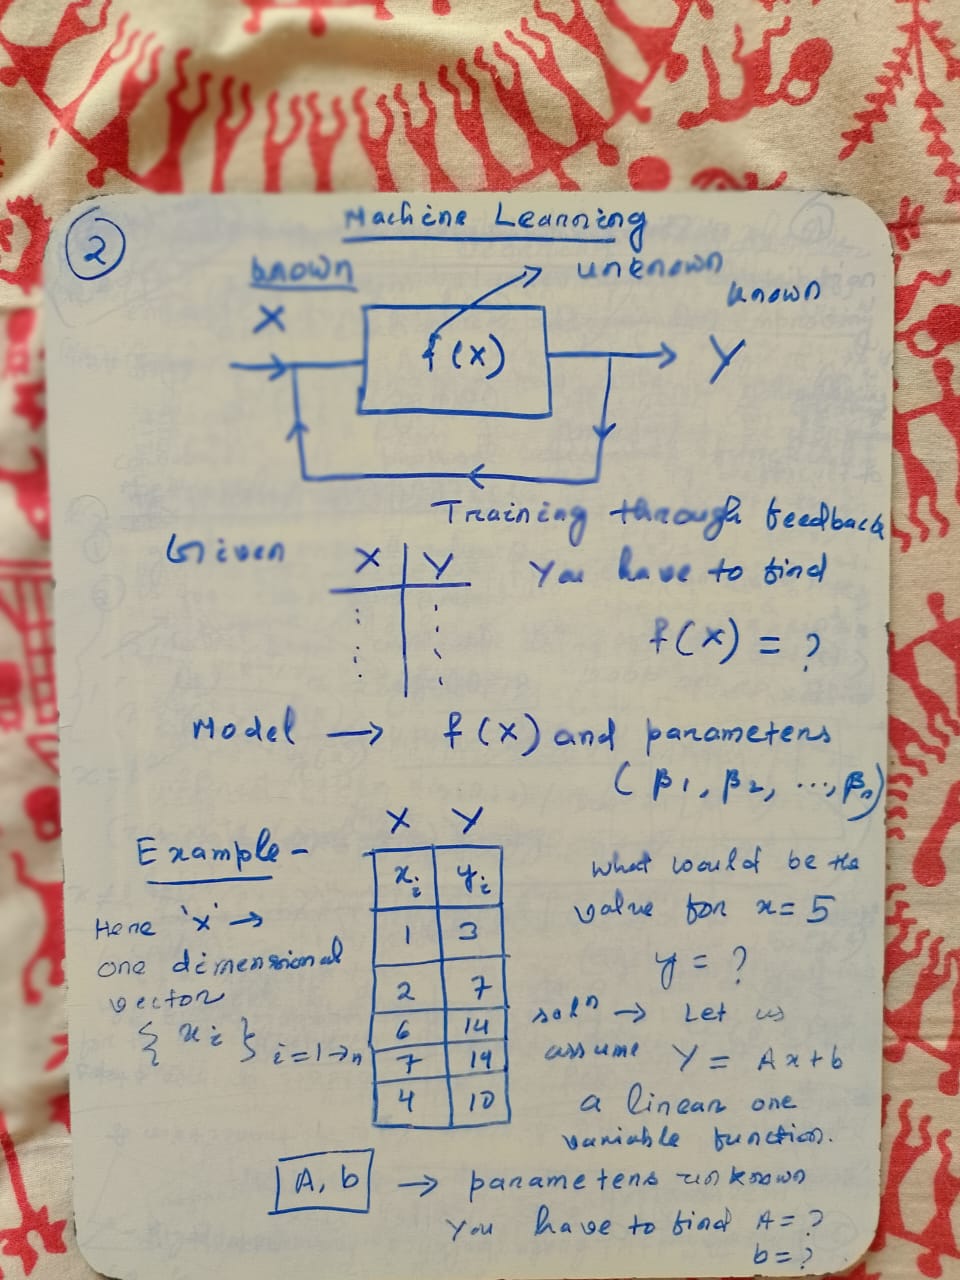 2
Machine Learning
known
unknown
known
X
f(x)
Y
Training through feedback
Given
X Y
You have to find
f(x) = ?
Model → f(x) and parameters
(β1, β2, ..., βn)
Example -
X Y
xi yi
1 3
2 7
6 14
7 19
4 10
Here 'x' →
one dimensional
vector
{ xi } i=1→n
What would be the
value for x=5
y = ?
soln → Let us
assume Y = Ax+b
a linear one
variable function.
A, b → parameters unknown
You have to find A=?
b=?